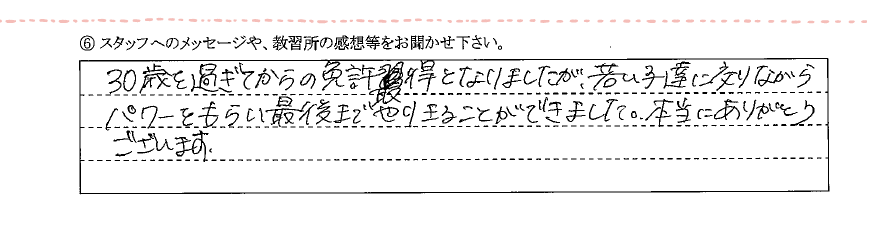 ⑥ スタッフへのメッセージや、教習所の感想等をお聞かせ下さい。
30歳を過ぎてからの免許習得となりましたが、若い子達に交りながら
パワーをもらい最後までやりきることができました。本当にありがとう
ございます。